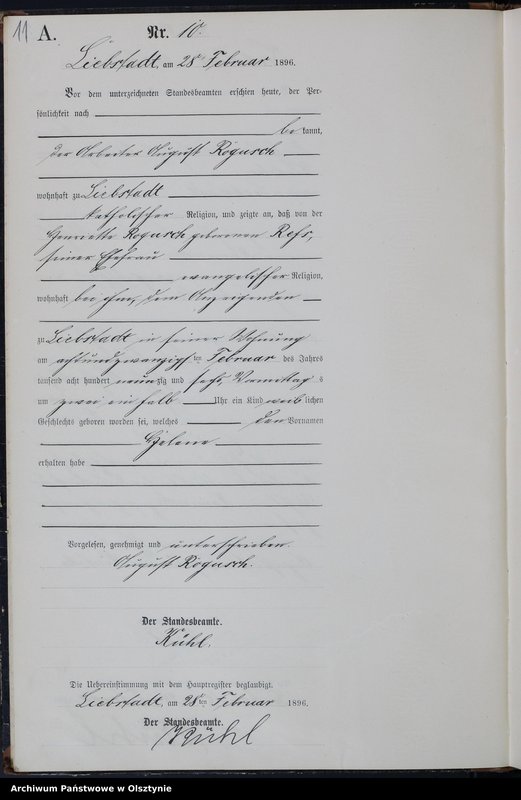 11
A.
Nr. 10.
Liebstadt, am 28ten Februar 1896.
Vor dem unterzeichneten Standesbeamten erschien heute, der Per-
sönlichkeit nach
be kannt,
der Arbeiter August Rogusch
wohnhaft zu Liebstadt
katholischer Religion, und zeigte an, daß von der
Henriette Rogusch geborenen Refs,
seiner Ehefrau
evangelischer Religion,
wohnhaft bei ihm, dem Anzeigenden
zu Liebstadt in seiner Wohnung
am achtundzwanzigsten Februar des Jahres
tausend acht hundert neunzig und sechs, Vormittags
um zwei ein halb Uhr ein Kind weiblichen
Geschlechts geboren worden sei, welches den Vornamen
Helene
erhalten habe
Vorgelesen, genehmigt und unterschrieben.
August Rogusch.
Der Standesbeamte.
Kühl.
Die Uebereinstimmung mit dem Hauptregister beglaubigt.
Liebstadt, am 28ten Februar 1896.
Der Standesbeamte.
Kühl
Archiwum Państwowe w Olsztynie